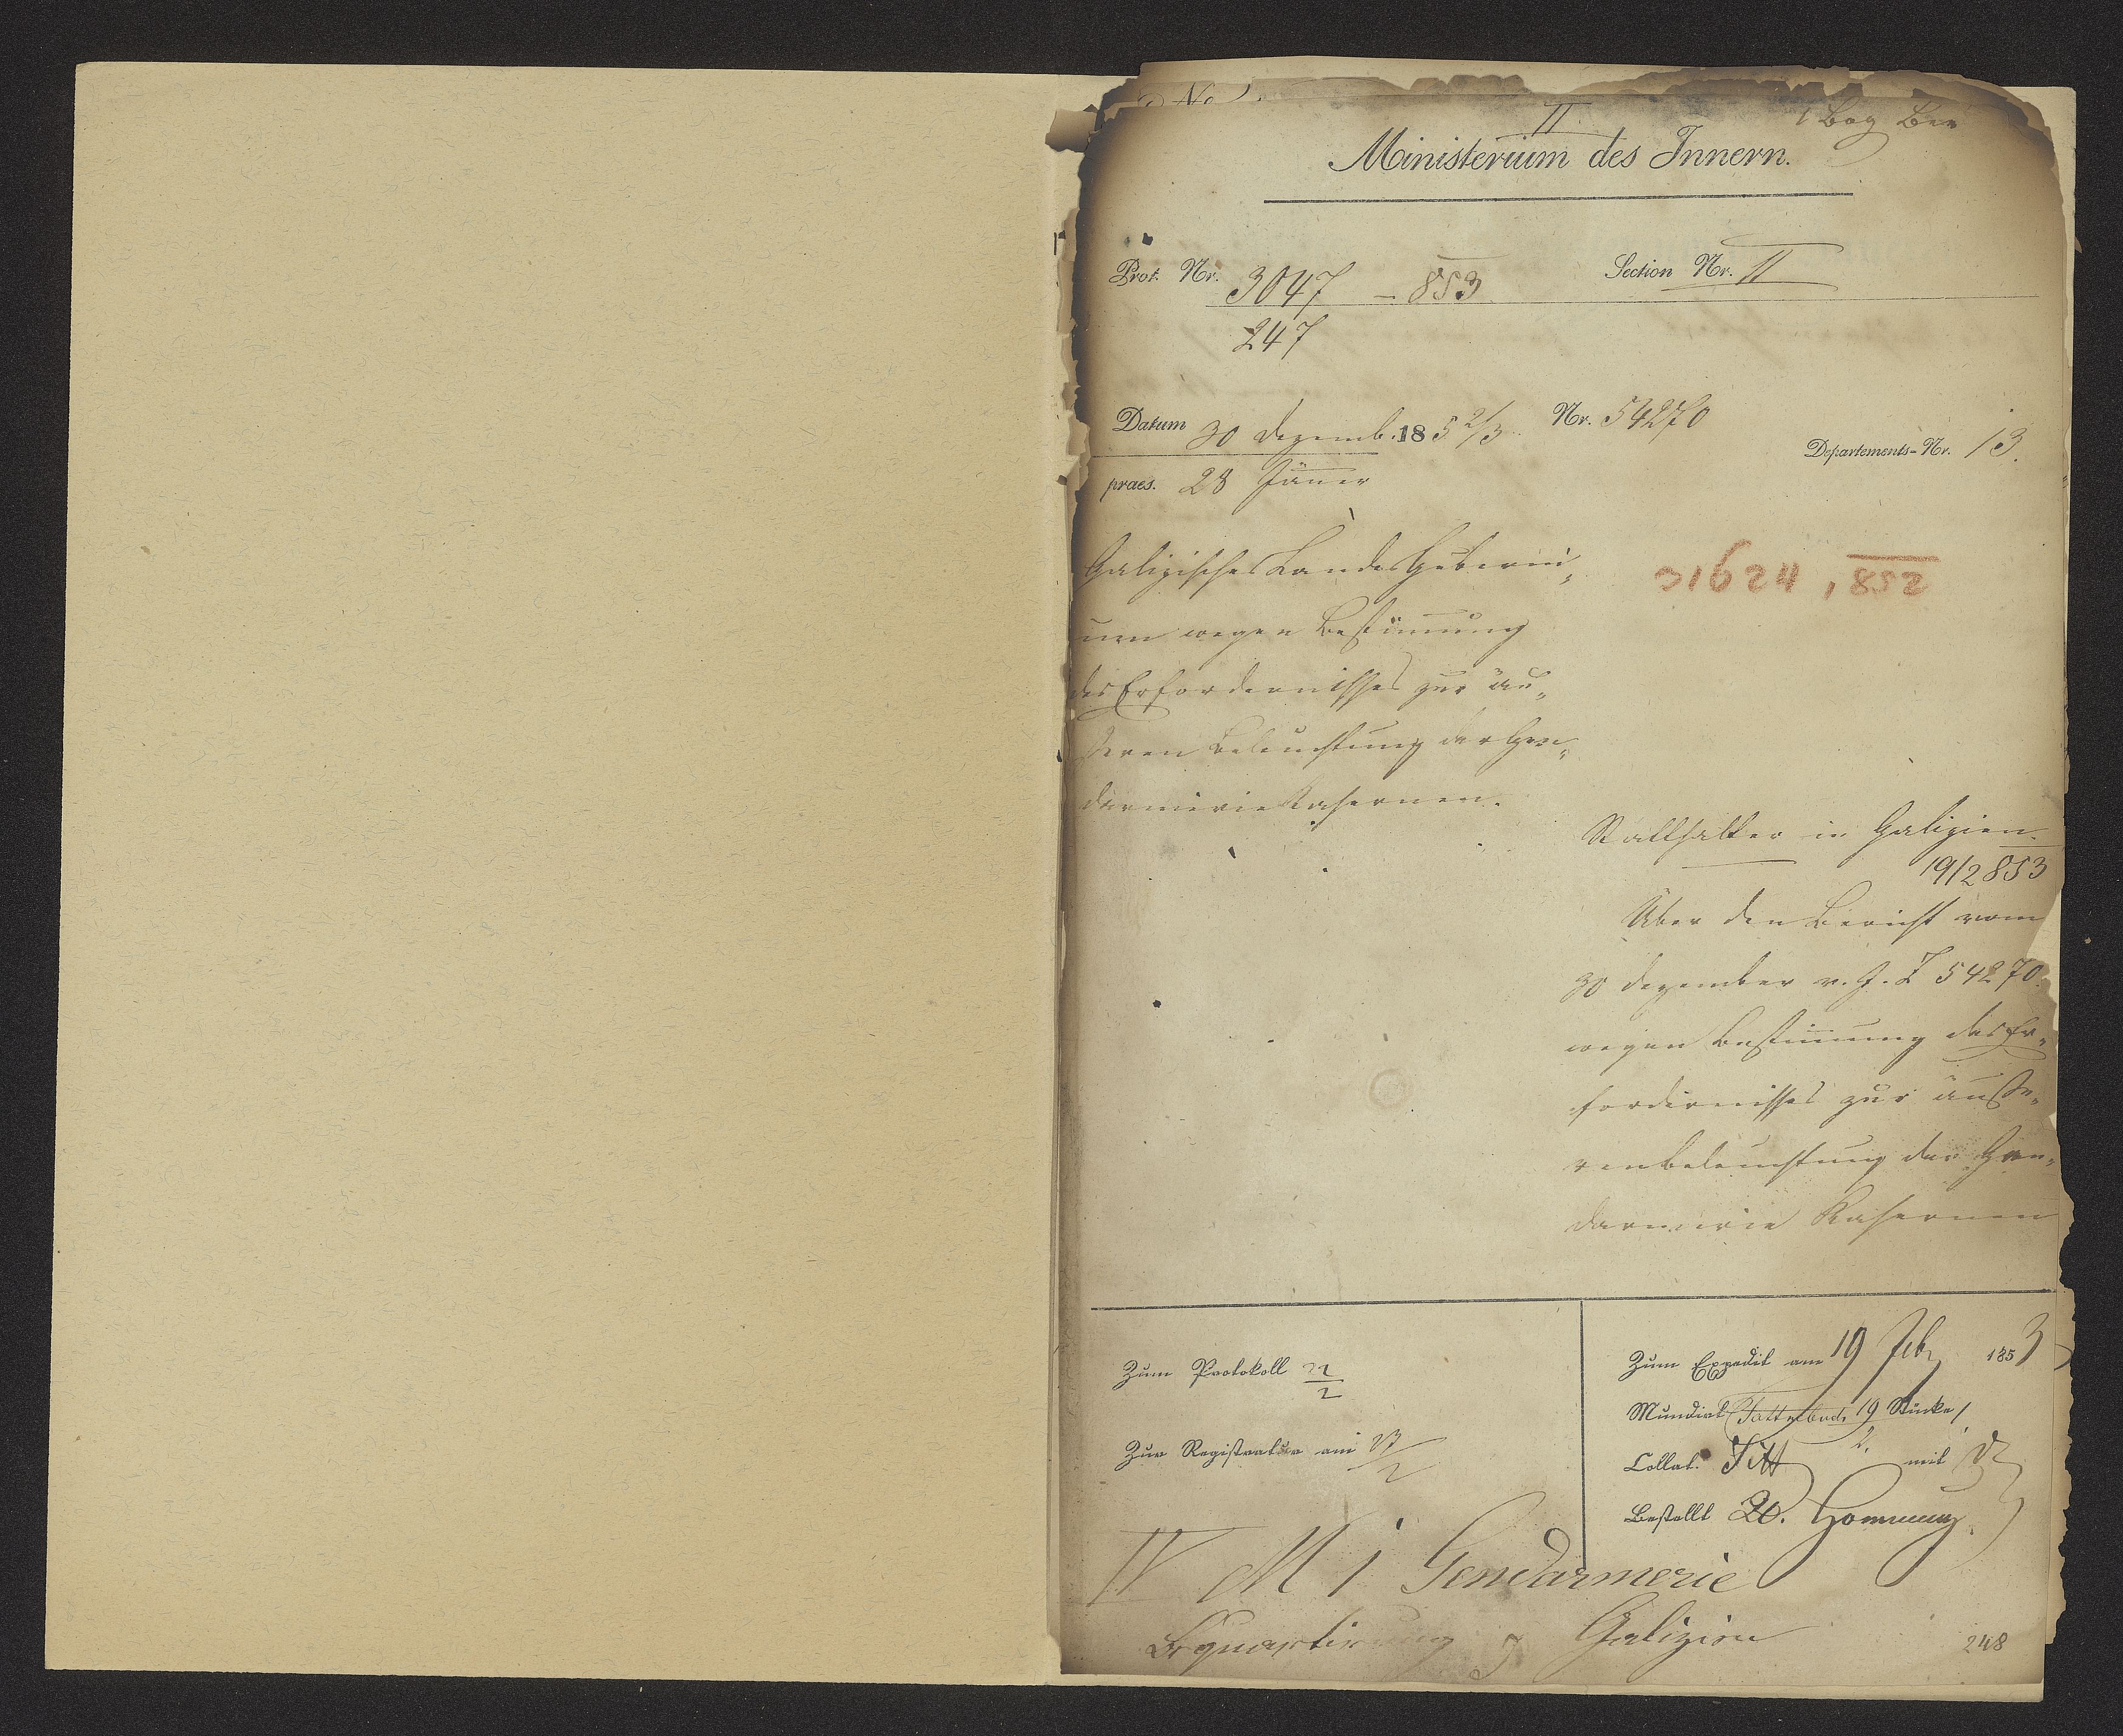 II
1 Bog Ber
Ministerium des Innern.
Prot. Nr. 3047 — 853
247
Section Nr. II
Datum 30 Dezemb. 185 2/3 Nr. 54270
Departements-Nr. 13.
praes. 28 Jäner
31624, 852
Galizisches Landes Guberni„
um wegen Bestimung
des Erfordernisses zur äu„
ßeren Beleuchtung der Gen„
darmerie Kasernen.
Statthalter in Galizien.
19/2 853
Über den Bericht vom
30 Dezember v. J. Z 54270.
wegen Bestimung des Er„
fordernisses zur äuße„
ren Beleuchtung der Gen„
darmerie Kasernen
Zum Protokoll 22/2
Zur Registratur am 23/2
Zum Expedit am 19 Feb 1853
Mundirt 19 Stücke 1
2.
Collat. mit
Bestellt 20. Hornung
IV M i Gendarmerie
Bequartirung Galizien
248